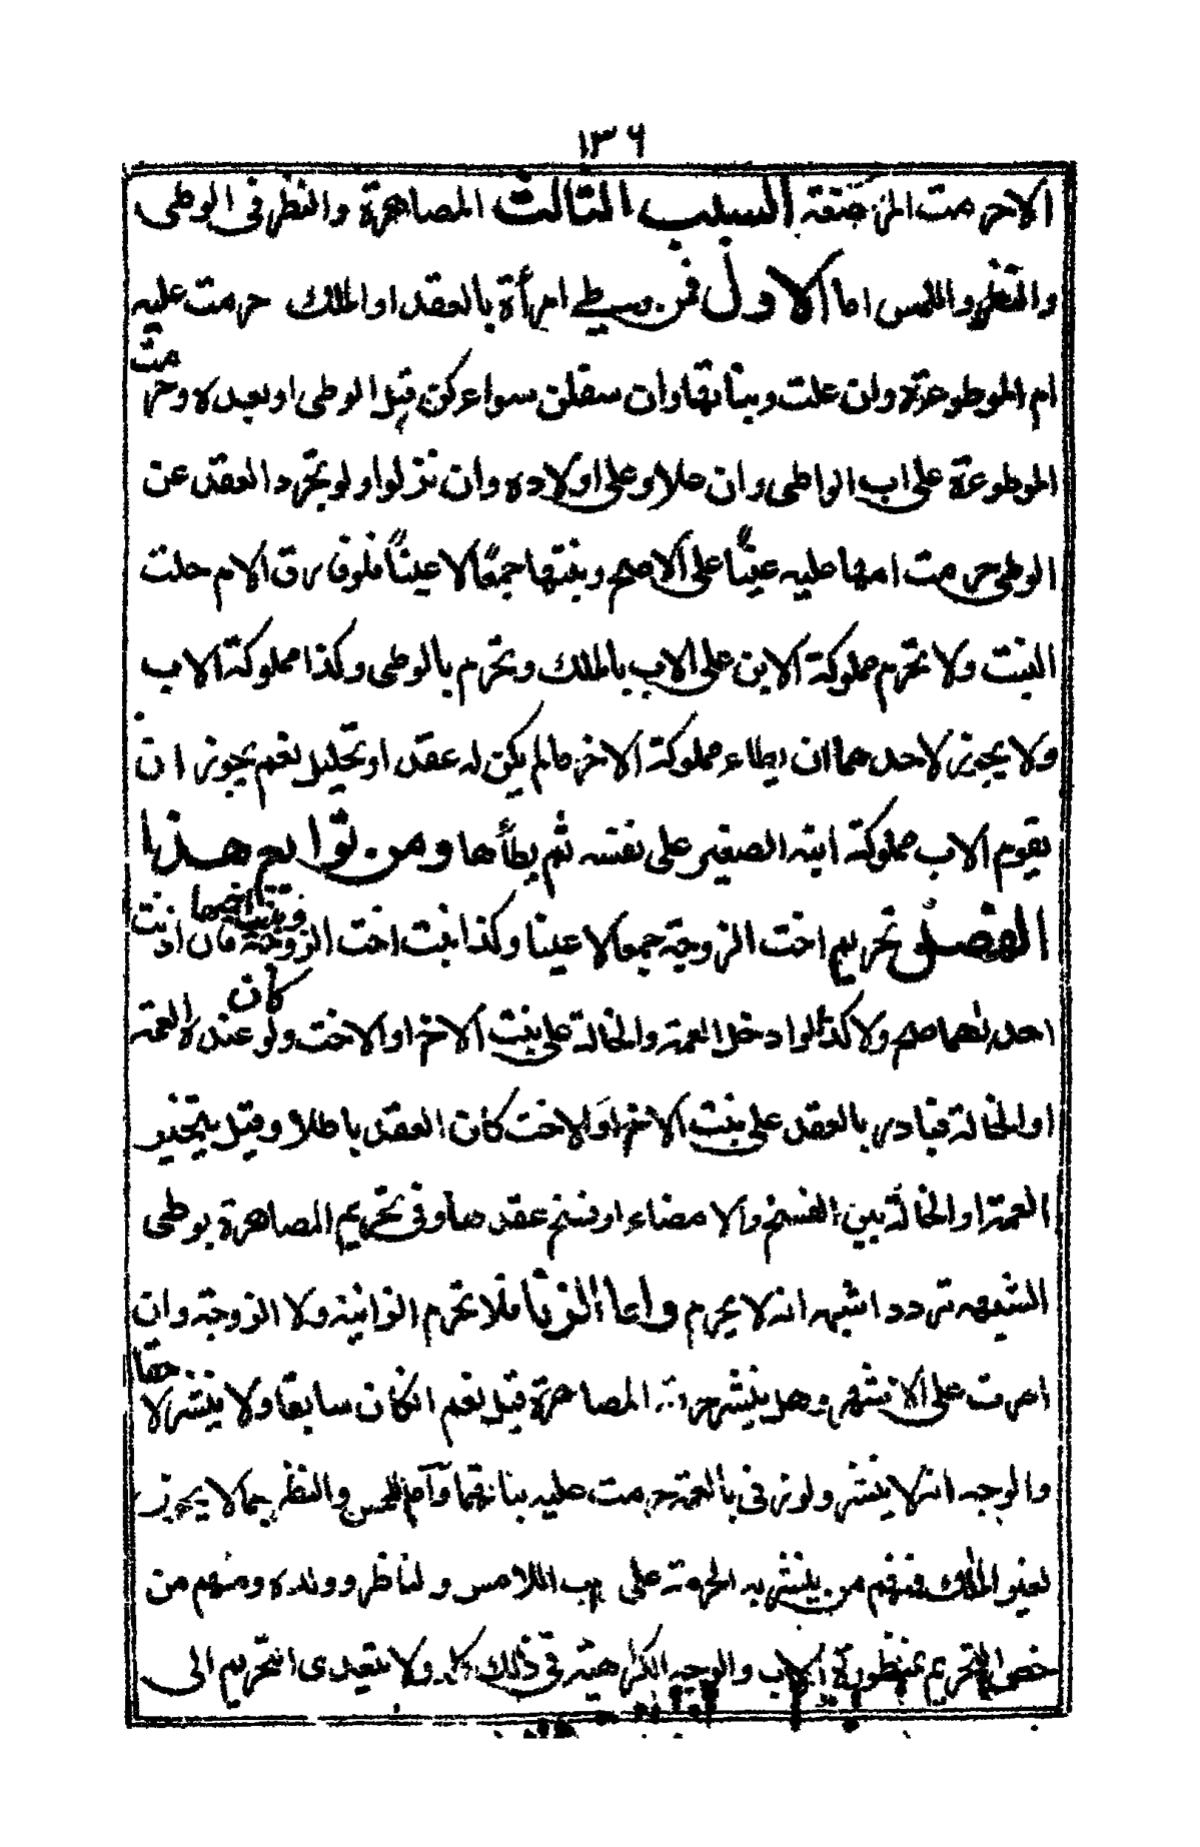 ١٣٦
الا حرمت المرتضعة السبب الثالث المصاهرة والنظر في الوطى
والنظر واللمس اما الاول فمن وطى امرأة بالعقد او الملك حرمت عليه
ام الموطوءة وان علت وبناتها وان سفلن سواء كن قبل الوطى او بعده وحرمت
الموطوءة على اب الواطى وان علا وعلى اولاده وان نزلوا ولو تجرد العقد عن
الوطى حرمت امها عليه عينًا على الاصح وبنتها جمعًا لا عينًا فلو فارق الام حلت
البنت ولا تحرم مملوكة الابن على الاب بالملك وتحرم بالوطى وكذا مملوكة الاب
ولا يجوز لاحدهما ان يطاء مملوكة الاخر ما لم يكن له عقد او تحليل نعم يجوز ان
يقوم الاب مملوكة ابنه الصغير على نفسه ثم يطأها ومن توابع هذا
الفصل تحريم اخت الزوجة جمعا لا عينا وكذا بنت اخت الزوجة وبنت اخيها فان اذنت
احدٰهما صح ولا كذا لو ادخل العمة والخالة على بنت الاخ او الاخت ولو كان عنده العمة
او الخالة فبادر بالعقد على بنت الاخ او الاخت كان العقد باطلا وقيل يتخير
العمة او الخالة بين الفسخ والامضاء او فسخ عقدها وفي تحريم المصاهرة بوطى
الشبهه تردد اشبهه انه لا يحرم واما الزنا فلا تحرم الزانية ولا الزوجة وان
اصرت على الاشهر وهل ينشر حرمة المصاهرة قيل نعم ان كان سابقا ولا ينشر لاحقا
والوجه انه لا ينشر ولو زنى بالعمة حرمت عليه بناتهما واما اللمس والنظر بما لا يجوز
لغير الملك فمنهم من ينشر به الحرمة على اب اللامس والناظر وولده ومنهم من
خص التحريم بمنظورة الاب والوجه الكراهية في ذلك كله ولا يتعدى التحريم الى